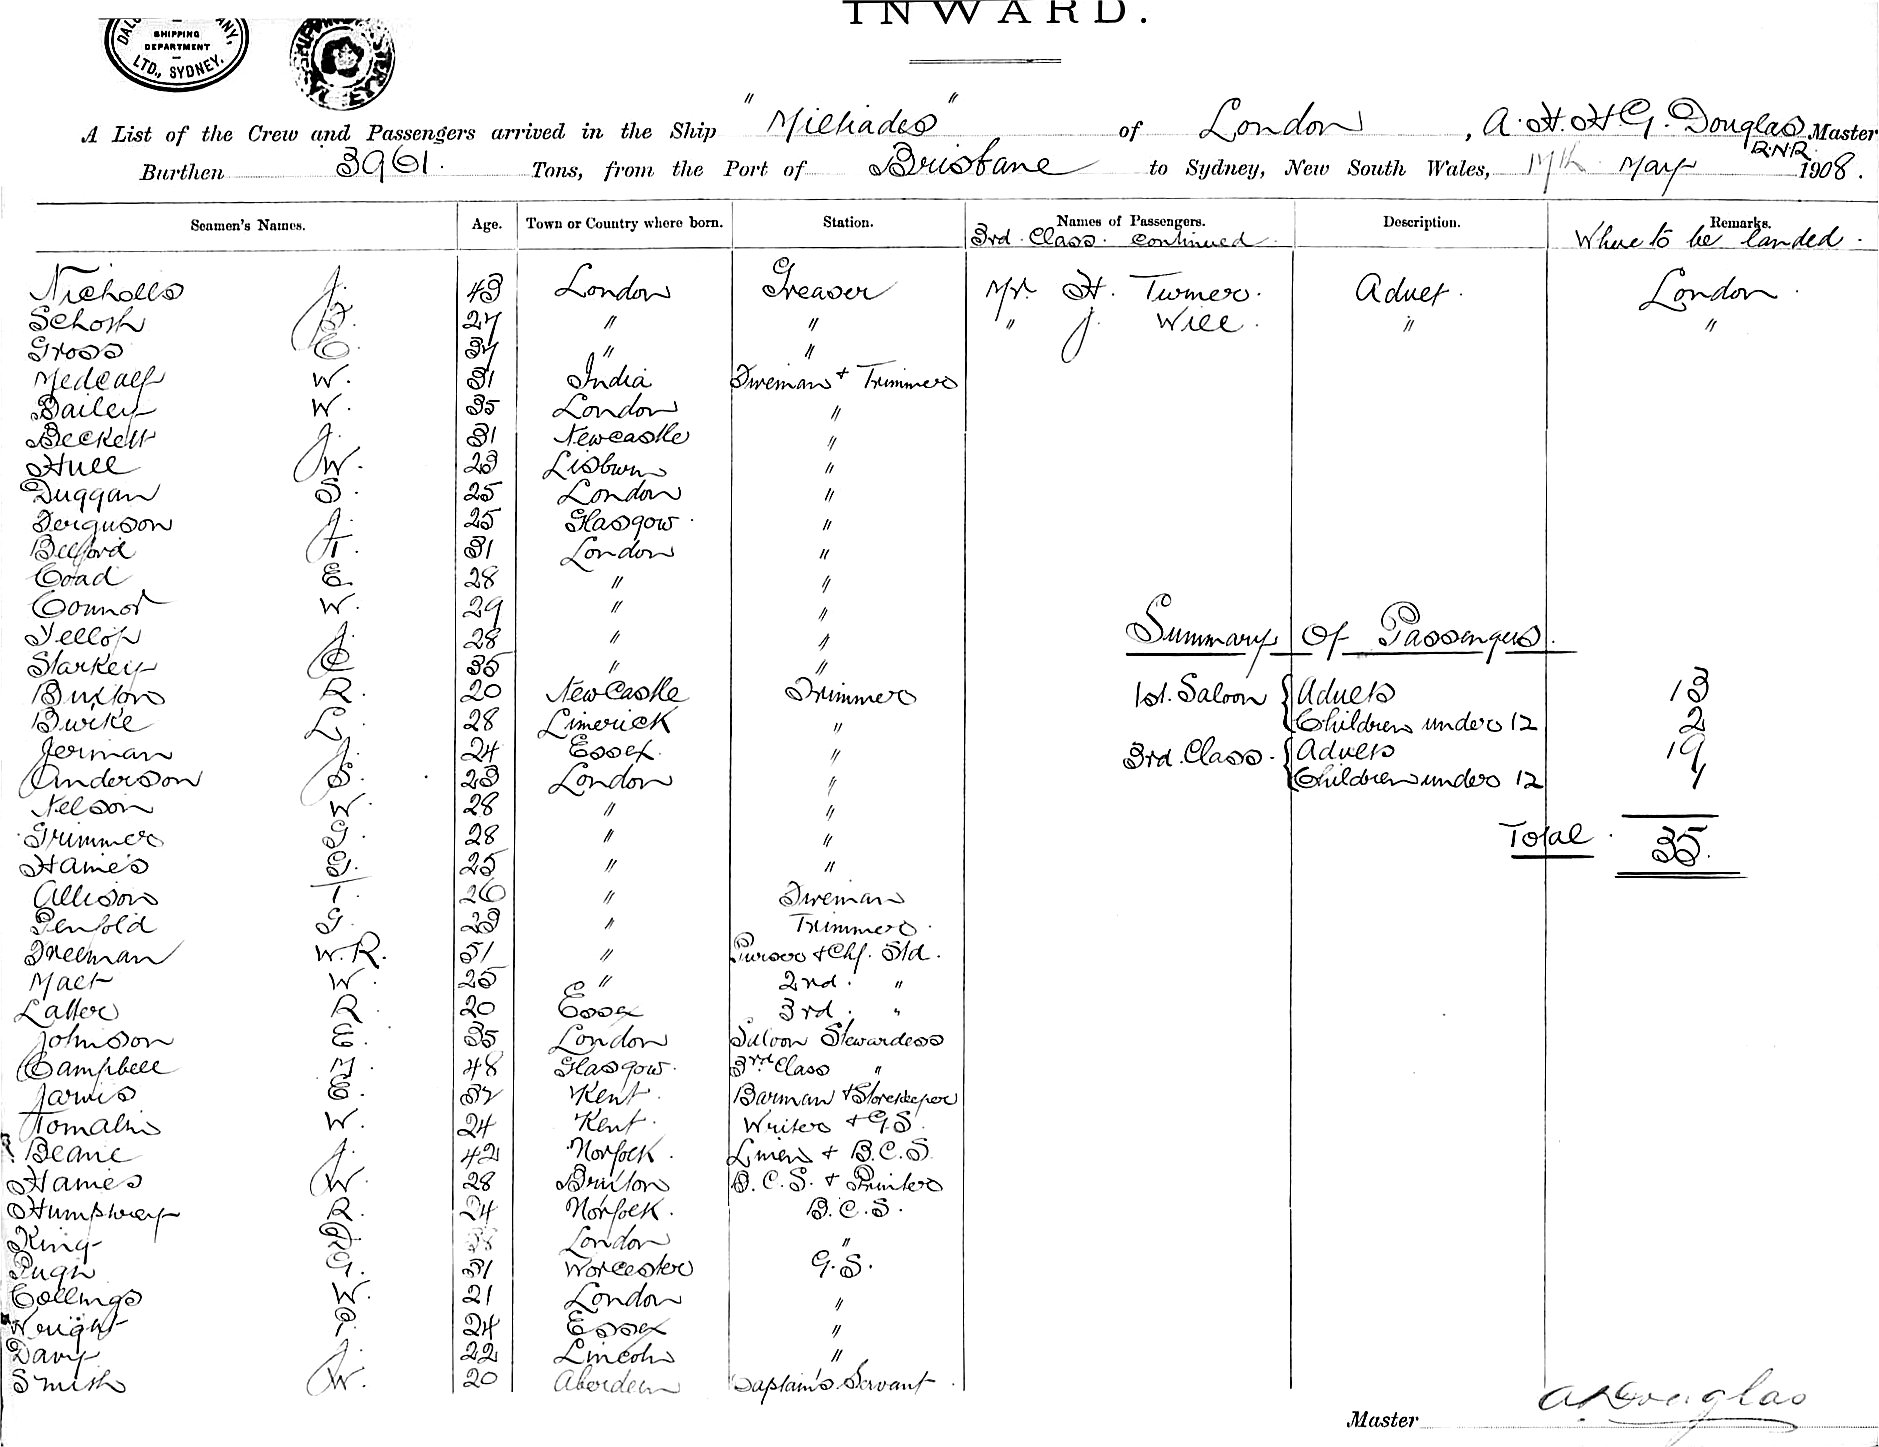 INWARD.
SHIPPING
DEPARTMENT
LTD., SYDNEY.
A List of the Crew and Passengers arrived in the Ship "Miltiades" of London, A. H. H. G. Douglas R.N.R. Master
Burthen 3961. Tons, from the Port of Brisbane to Sydney, New South Wales, May 1908.
Seamen's Names. Age. Town or Country where born. Station. Names of Passengers. Description. Remarks.
3rd. Class. continued. Where to be landed.
Nicholls J. 43 London Greaser Mr. H. Turner. Adult. London.
Schoth F. 27 " " " J. Will. " "
Gross C. 37 " "
Medcalf W. 31 India Fireman + Trimmer
Bailey W. 35 London "
Beckett J. 31 Newcastle "
Hull W. 23 Lisburn "
Duggan S. 25 London "
Ferguson J. 25 Glasgow. "
Belford T. 31 London "
Coad E. 28 " "
Connor W. 29 " "
Jellop J. 28 " "
Summary Of Passengers.
Starkey C. 35 " "
Buxton R. 20 NewCastle Trimmer 1st. Saloon { Adults 13
Burke L. 28 Limerick " Children under 12 2
Jerman J. 24 Essex. " 3rd. Class. { Adults 19
Anderson S. 23 London " Children under 12 1
Nelson W. 28 " "
Trimmer G. 28 " " Total. 35.
Hames G. 25 " "
Allison T. 26 " Fireman
Penfold G. 23 " Trimmer.
Freeman W.R. 51 " Purser + Chf. Std.
Malt W. 25 " 2nd. "
Latter R. 20 Essex 3rd. "
Johnson E. 35 London Saloon Stewardess
Campbell M. 48 Glasgow. 3rd Class "
Jarvis E. 32 Kent. Barman + Storekeeper
Tomalin W. 24 Kent. Writer + G.S.
Beane J. 42 Norfolk. Linen + B.C.S.
Hames W. 28 Brixton B.C.S. + Printer
Humphrey R. 24 Norfolk. B.C.S.
King D. 38 London "
Pugh G. 31 Worcester G.S.
Collings W. 21 London "
Wright P. 24 Essex "
Davy J. 22 Lincoln "
Smith W. 20 Aberdeen Captain's Servant.
A. Douglas
Master